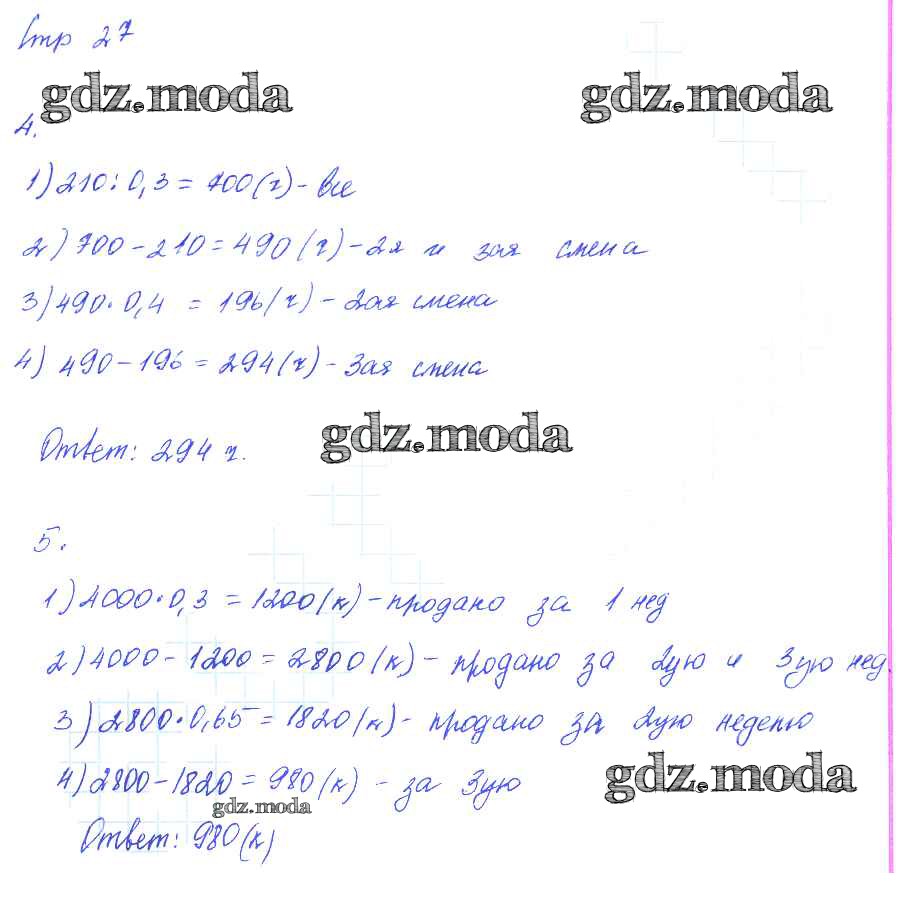 Стр 27
gdz.moda gdz.moda
4.
1) 210 : 0,3 = 700 (г) - все
2) 700 - 210 = 490 (г) - 2я и 3ая смена
3) 490 · 0,4 = 196 (г) - 2ая смена
4) 490 - 196 = 294 (г) - 3ая смена
Ответ: 294 г.
gdz.moda
5.
1) 4000 · 0,3 = 1200 (к) - продано за 1 нед
2) 4000 - 1200 = 2800 (к) - продано за 2ую и 3ую нед.
3) 2800 · 0,65 = 1820 (к) - продано за 2ую неделю
4) 2800 - 1820 = 980 (к) - за 3ую
gdz.moda
gdz.moda
Ответ: 980 (к)